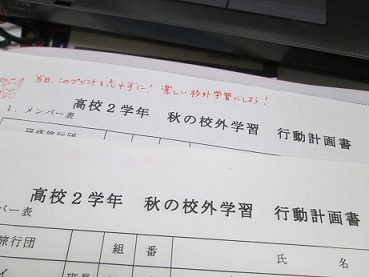 当日、このプリントを忘れずに！楽しい校外学習にしよう！
高校２学年　秋の校外学習　行動計画書
１．メンバー表
研修旅行団
高校２学年　秋の校外学習　行動計画書
バー表
旅行団　組　番　氏　名
イ　班長